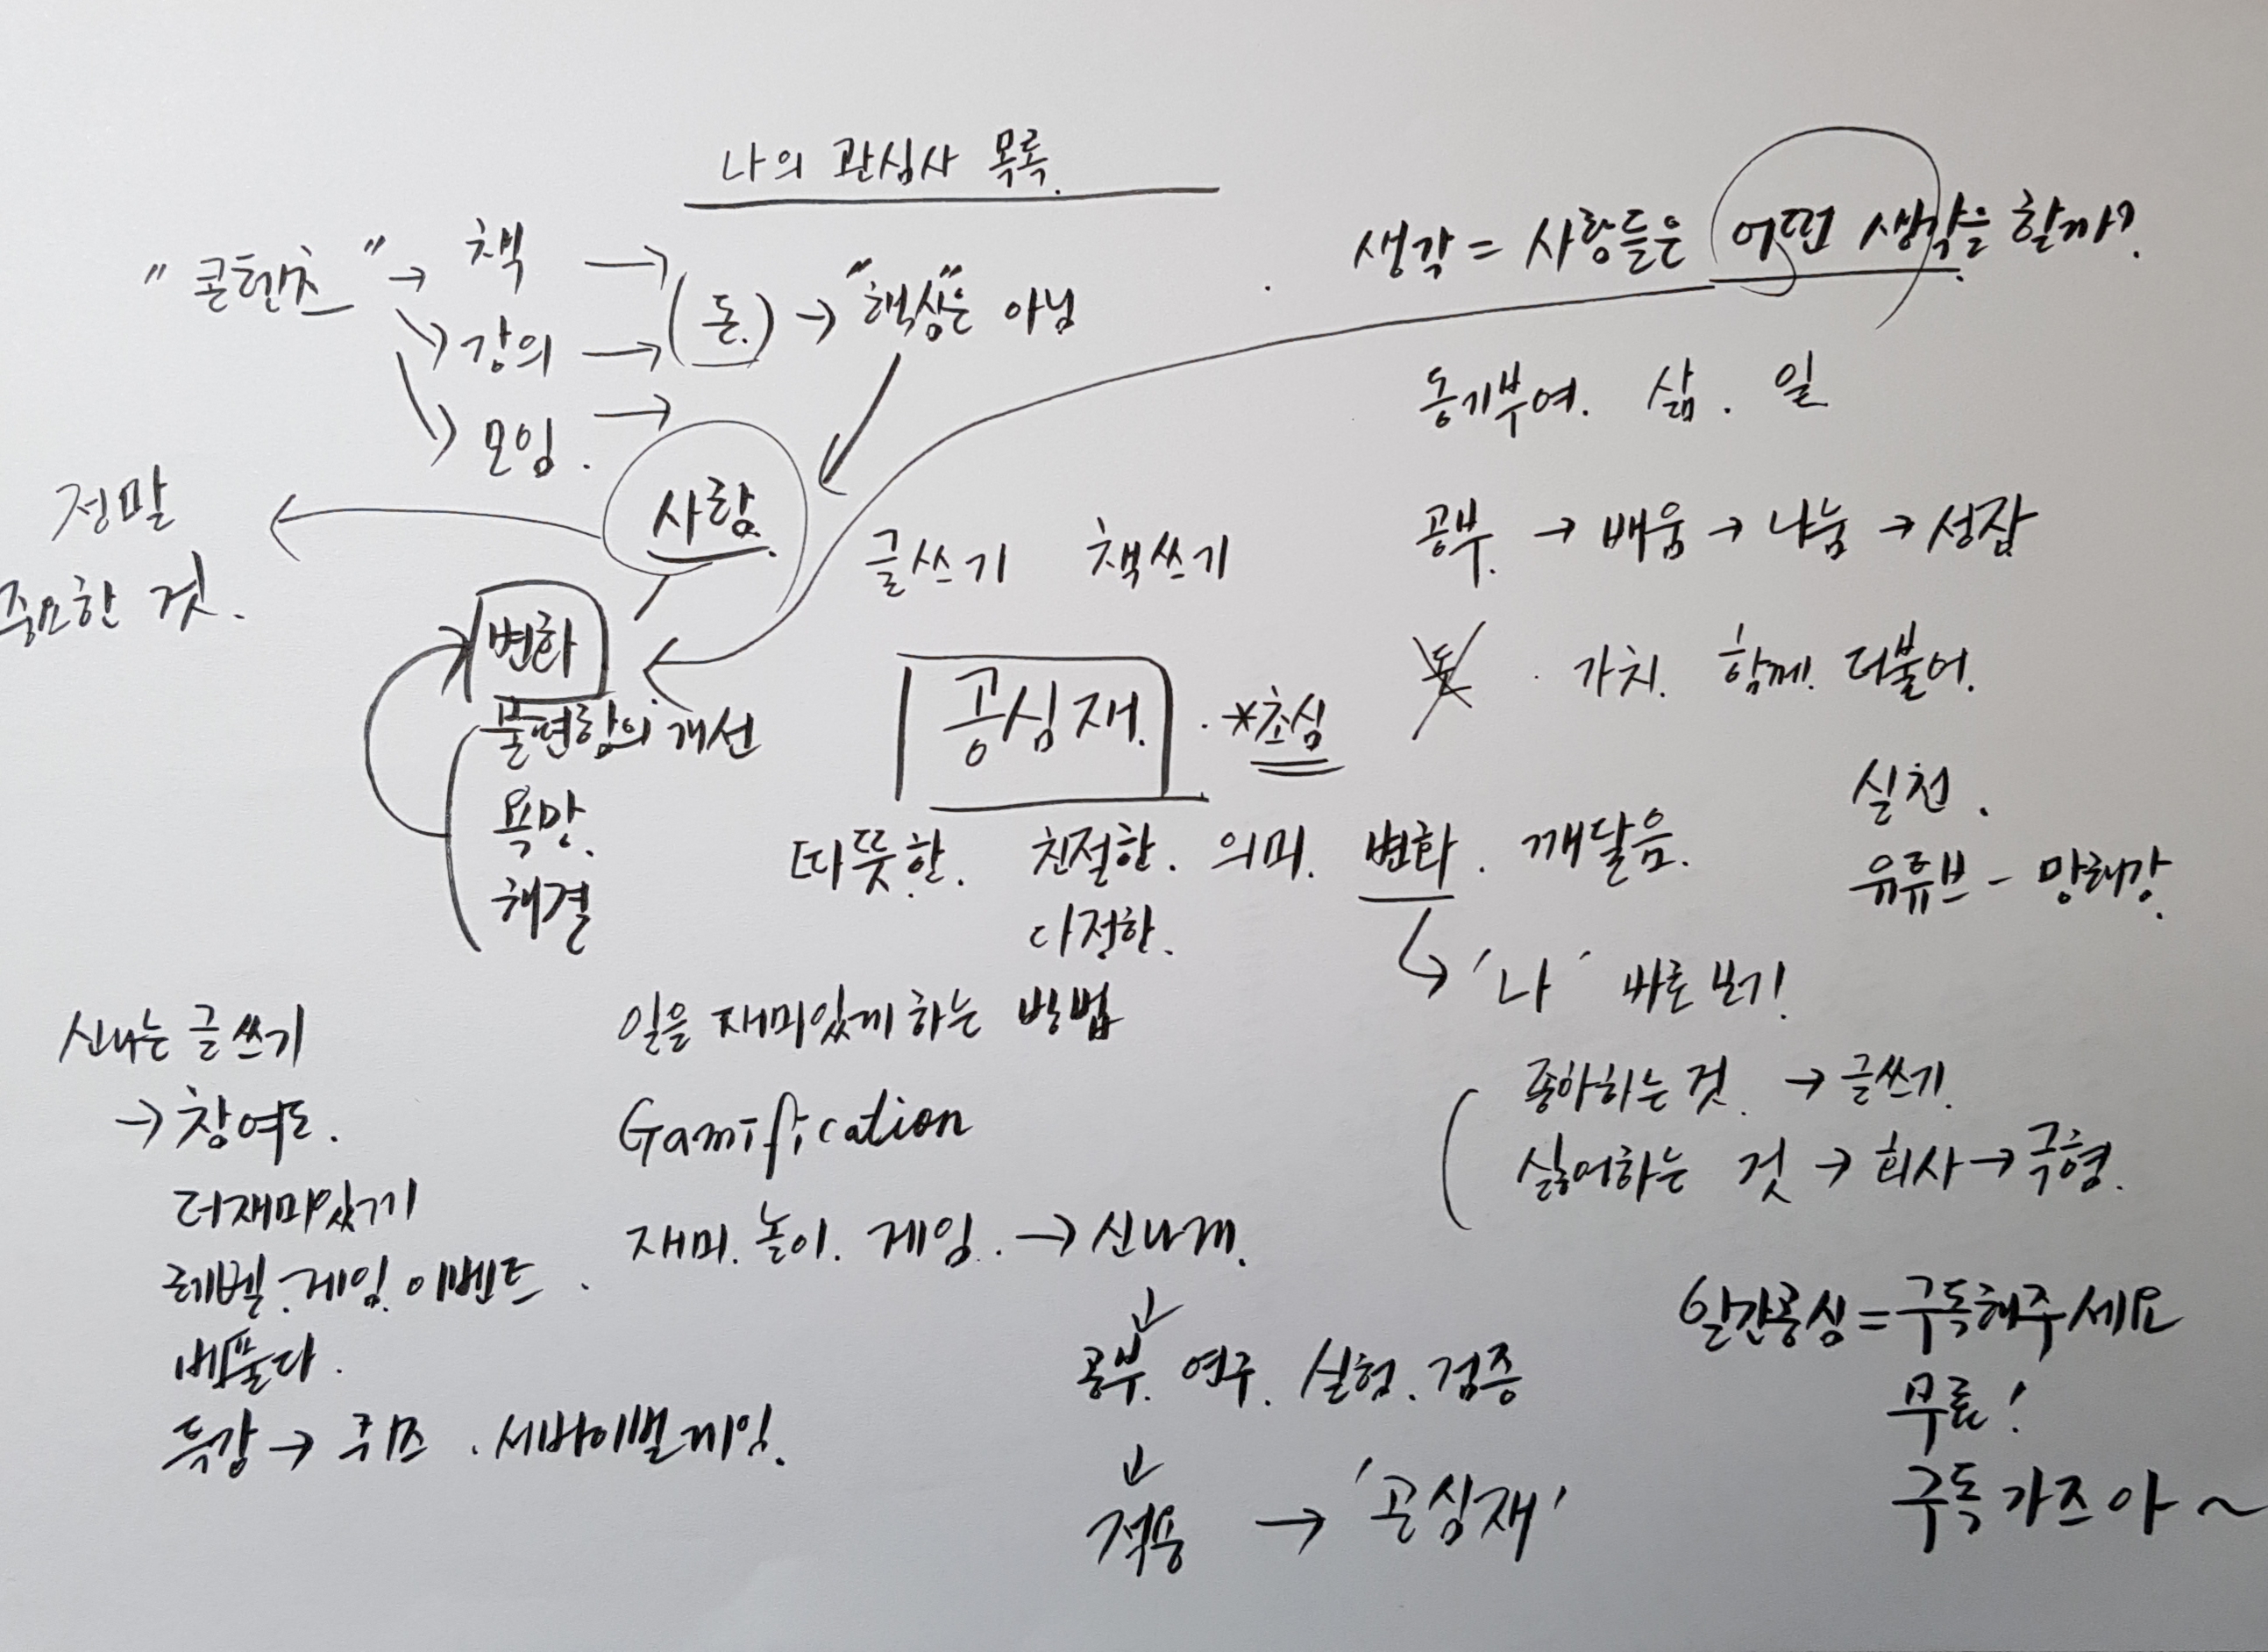 나의 관심사 목록.
"콘텐츠" → 책 →
→ 강의 → (돈.) → "핵심"은 아님
→ 모임. →
사람.
정말
중요한 것.
변화
불편함의 개선
욕망.
해결
생각 = 사람들은 어떤 생각을 할까?
동기부여. 삶. 일
공부. → 배움 → 나눔 → 성장
돈 . 가치. 함께. 더불어.
글쓰기 책쓰기
공심재. *초심
실천.
유튜브 - 망해강.
따뜻한. 친절한. 의미. 변화. 깨달음.
다정한.
→ '나' 바로 보기!
신나는 글쓰기
→ 참여도.
더재미있기
레벨. 게임. 이벤트.
베풀다.
특강 → 퀴즈. 서바이벌게임.
일을 재미있게 하는 방법
Gamification
재미. 놀이. 게임. → 신나게.
↓
공부. 연구. 실험. 검증
↓
적용 → '공심재'
좋아하는 것. → 글쓰기.
싫어하는 것 → 회사 → 극혐.
일간공심 = 구독해주세요
무료!
구독 가즈아~